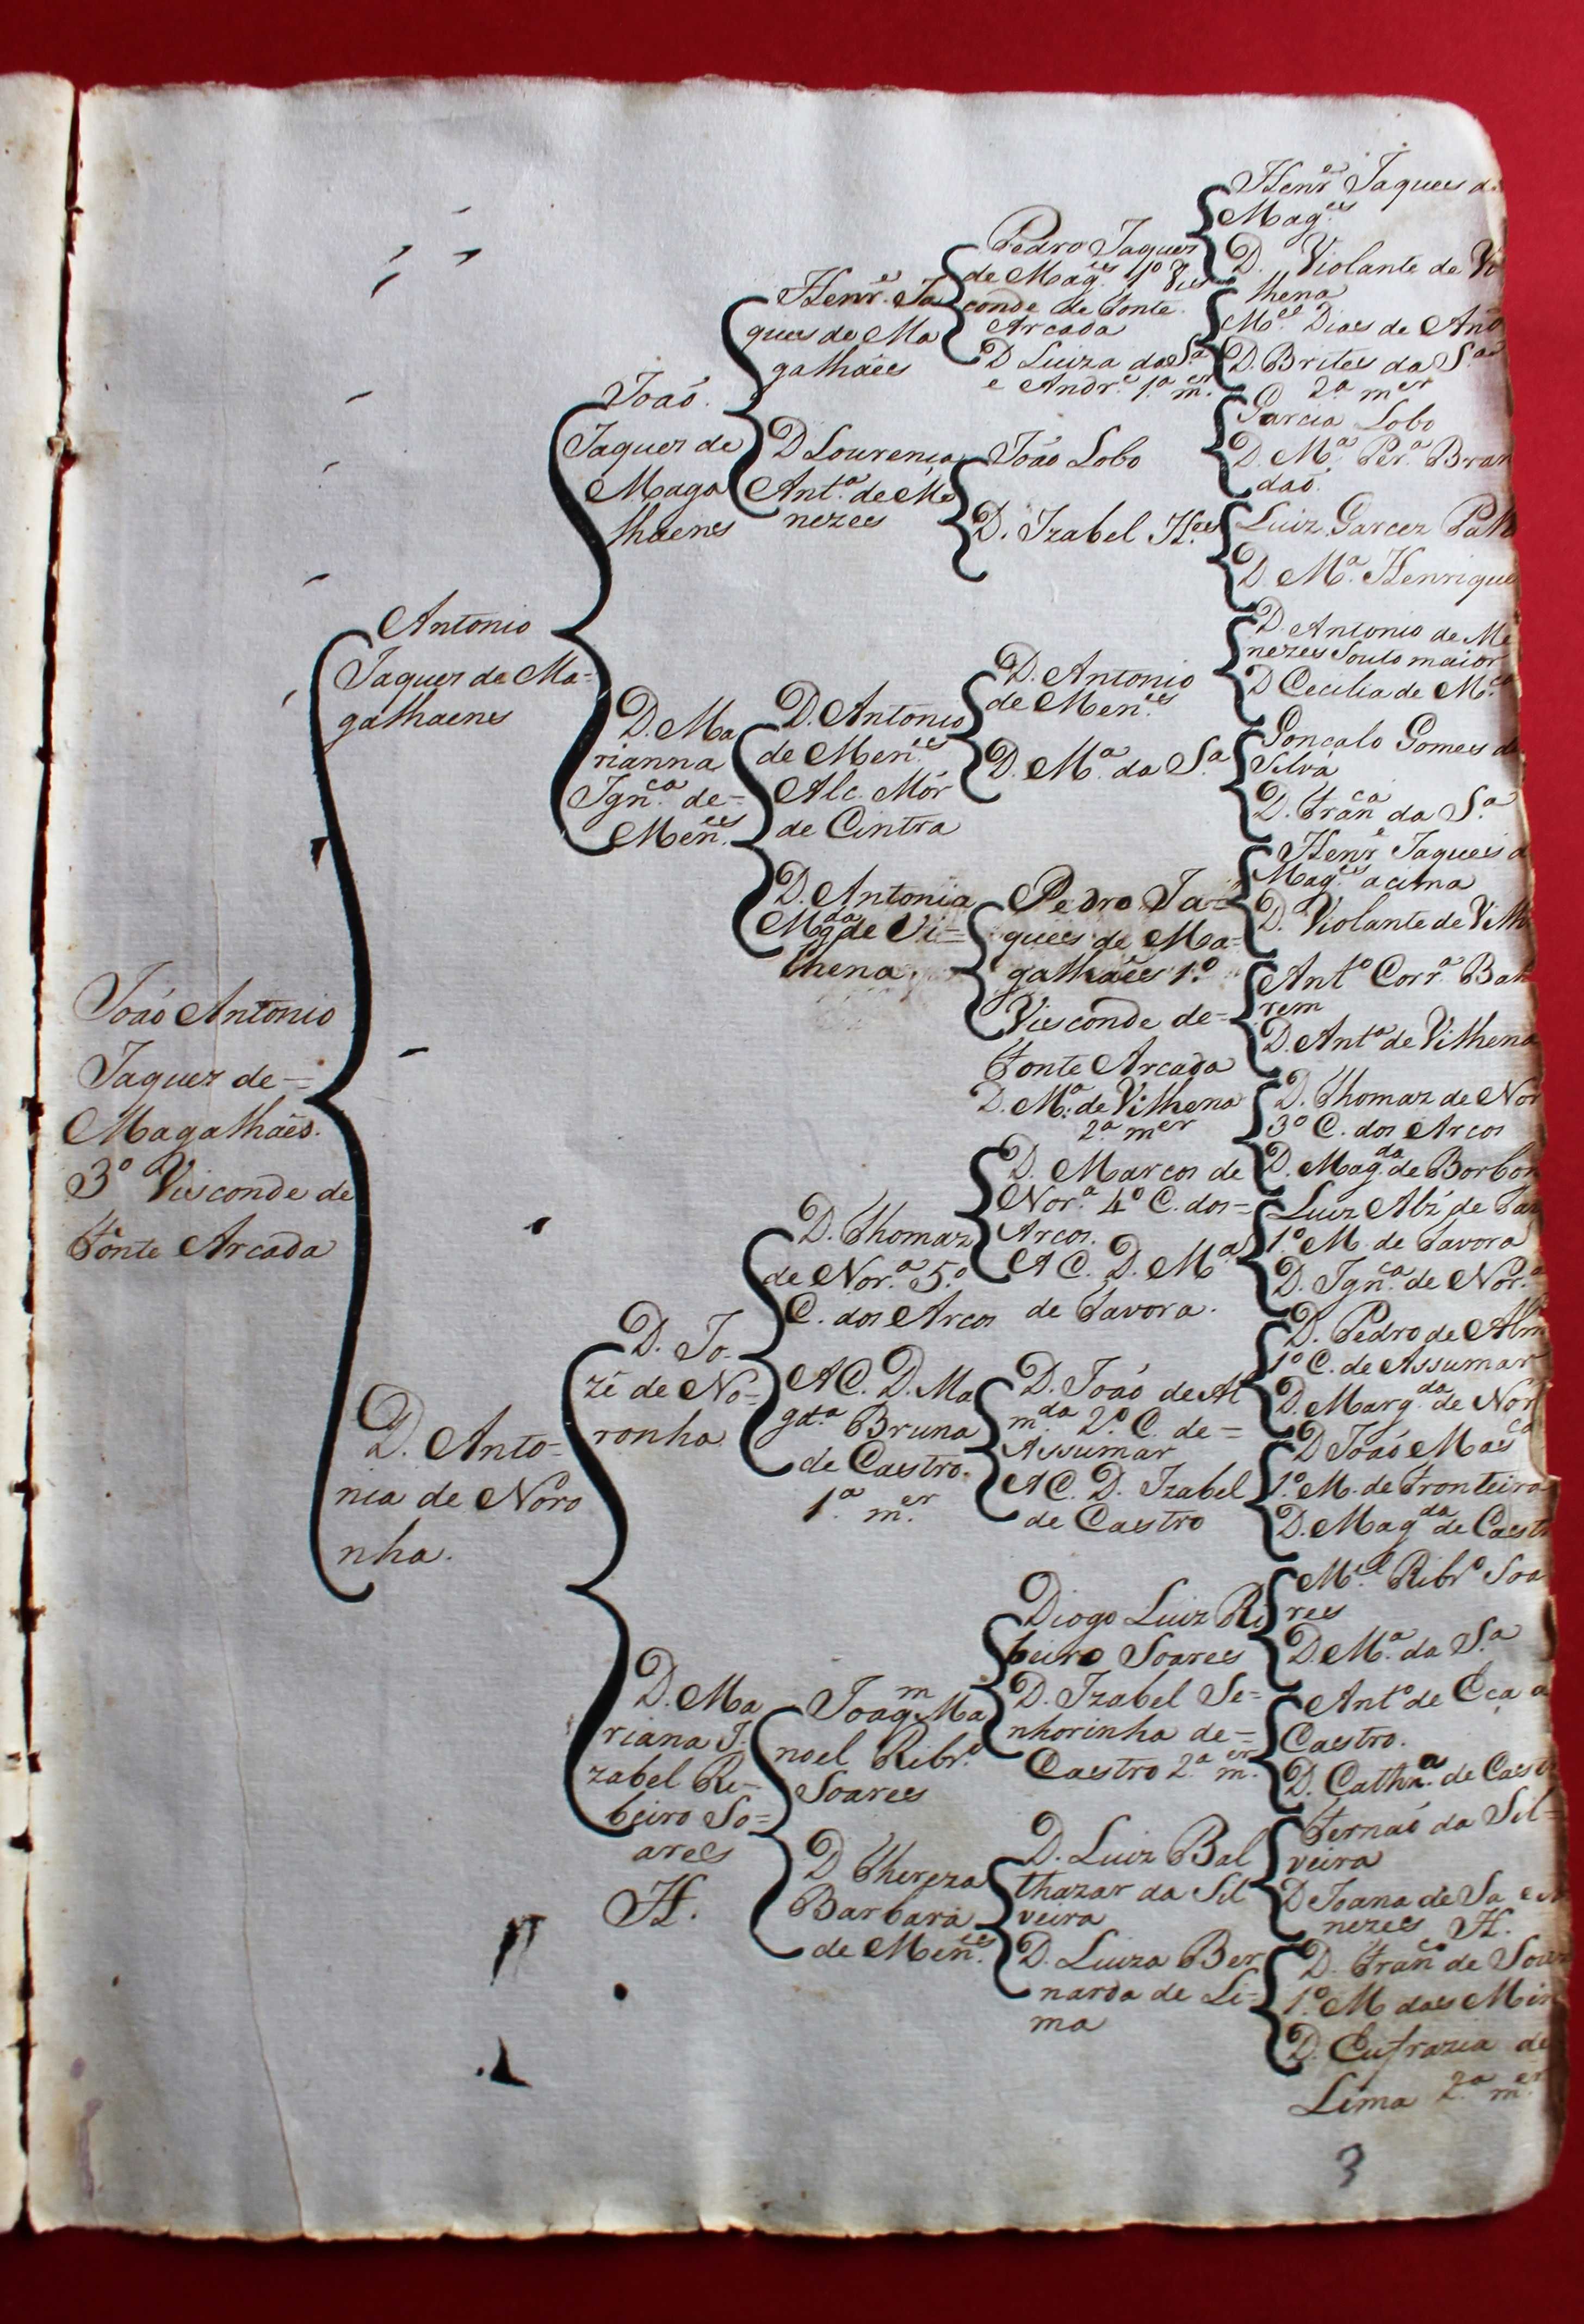 João Antonio
Jaques de=
Magalhaẽs.
3º Visconde de
Fonte Arcada
Antonio
Jaques de Ma=
galhaens
D. Anto=
nia de Noro
nha.
João
Jaques de
Maga
lhaens
D. Ma
rianna
Ignca. de=
Menes.
D. Jo=
zé de No=
ronha
D. Ma
riana I=
zabel Ri=
beiro So=
ares
H.
Henre. Ja
ques de Ma
galhães
D Lourença
Anta. de Me
nezes
D. Antonio
de Menes.
Alc. Mór
de Cintra
D. Antonia
Mgda. de Vi=
lhena.
D. Thomaz
de Nora. 5.º
C. dos Arcos
A C. D. Ma
gda. Bruna
de Castro.
1ª mer.
Joaqm. Ma
noel Ribro.
Soares
D Thereza
Barbara
de Menes.
Pedro Jaques
de Mages. 1º Vis
conde de Fonte
Arcada
D Luiza da Sa.
e Andre. 1ª mer.
João Lobo
D. Izabel Hes.
D. Antonio
de Menes.
D. Ma. da Sa.
Pedro Ja=
ques de Ma=
galhães 1º
Visconde de=
Fonte Arcada
D. Ma. de Vilhena
2ª mer
D. Marcos de
Nora. 4º C. dos=
Arcos.
A C. D. Ma.
de Tavora.
D. João de Al
mda. 2º C. de=
Assumar
A C. D. Izabel
de Castro
Diogo Luiz Ri
beiro Soares
D. Izabel Se=
nhorinha de=
Castro 2ª mer.
D. Luiz Bal
thazar da Sil
veira
D. Luiza Ber
narda de Li=
ma
Henre. Jaques de
Mages.
D. Violante de Vi
lhena
Mel. Dias de
D. Brites da Sa.
2ª mer
Garcia Lobo
D. Ma. Pera. Bran
dão.
Luiz Garcez Palh
D. Ma. Henrique
D. Antonio de Me
nezes Souto maior
D Cecilia de
Gonçalo Gomes da
Silva
D. Franca. da Sa.
Henre. Jaques d
Mages. acima
D. Violante de Vilh
Anto. Corra. Bah
rem
D. Anta. de Vilhena
D. Thomaz de Nor
3º C. dos Arcos
D. Magda. de Borbon
Luiz Alz' de Tav
1º M. de Tavora
D. Ignca. de Nora.
D. Pedro de Alm
1º C. de Assumar
D. Margda. de Nor
D João Masca
1º M. de Fronteira
D. Magda. de Castr
Mel. Ribro. Soa
res
D. Ma. da Sa.
Anto. de Eça
Castro.
D. Cathna. de Cast
Fernaõ da Sil=
veira
D Joana de Sa e
nezes H.
D. Franco. de Souz
1º M das Min
D. Eufrazia de
Lima 2ª mer.
3